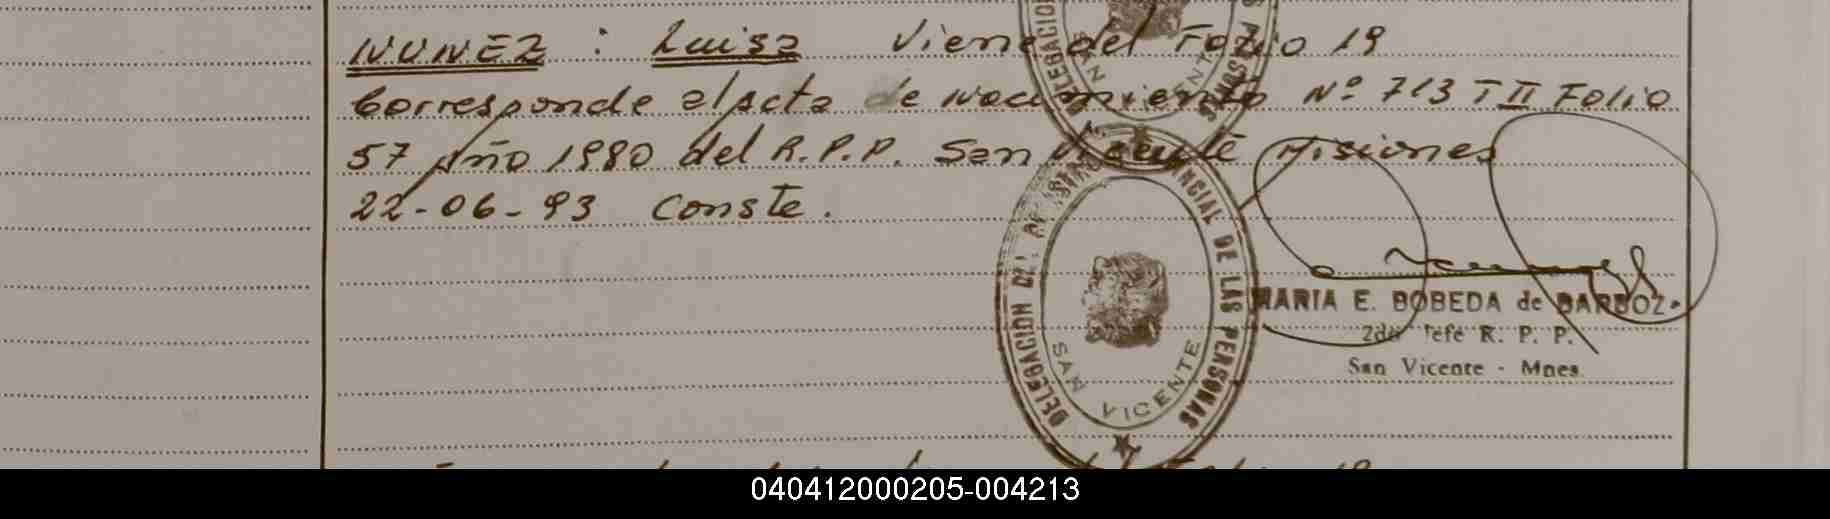 NUNEZ : Luisa Viene del Folio 19
Corresponde al acta de Nacimiento Nº 713 T II Folio
57 Año 1980 del R.P.P. San Vicente Misiones
22-06-93 Conste.
DELEGACION
SAN VICENTE
PERSONAS
DELEGACION DEL REGISTRO PROVINCIAL DE LAS PERSONAS
SAN VICENTE
MARIA E. BOBEDA de BARBOZ.
2do Jefe R. P. P.
San Vicente - Mnes.
040412000205-004213